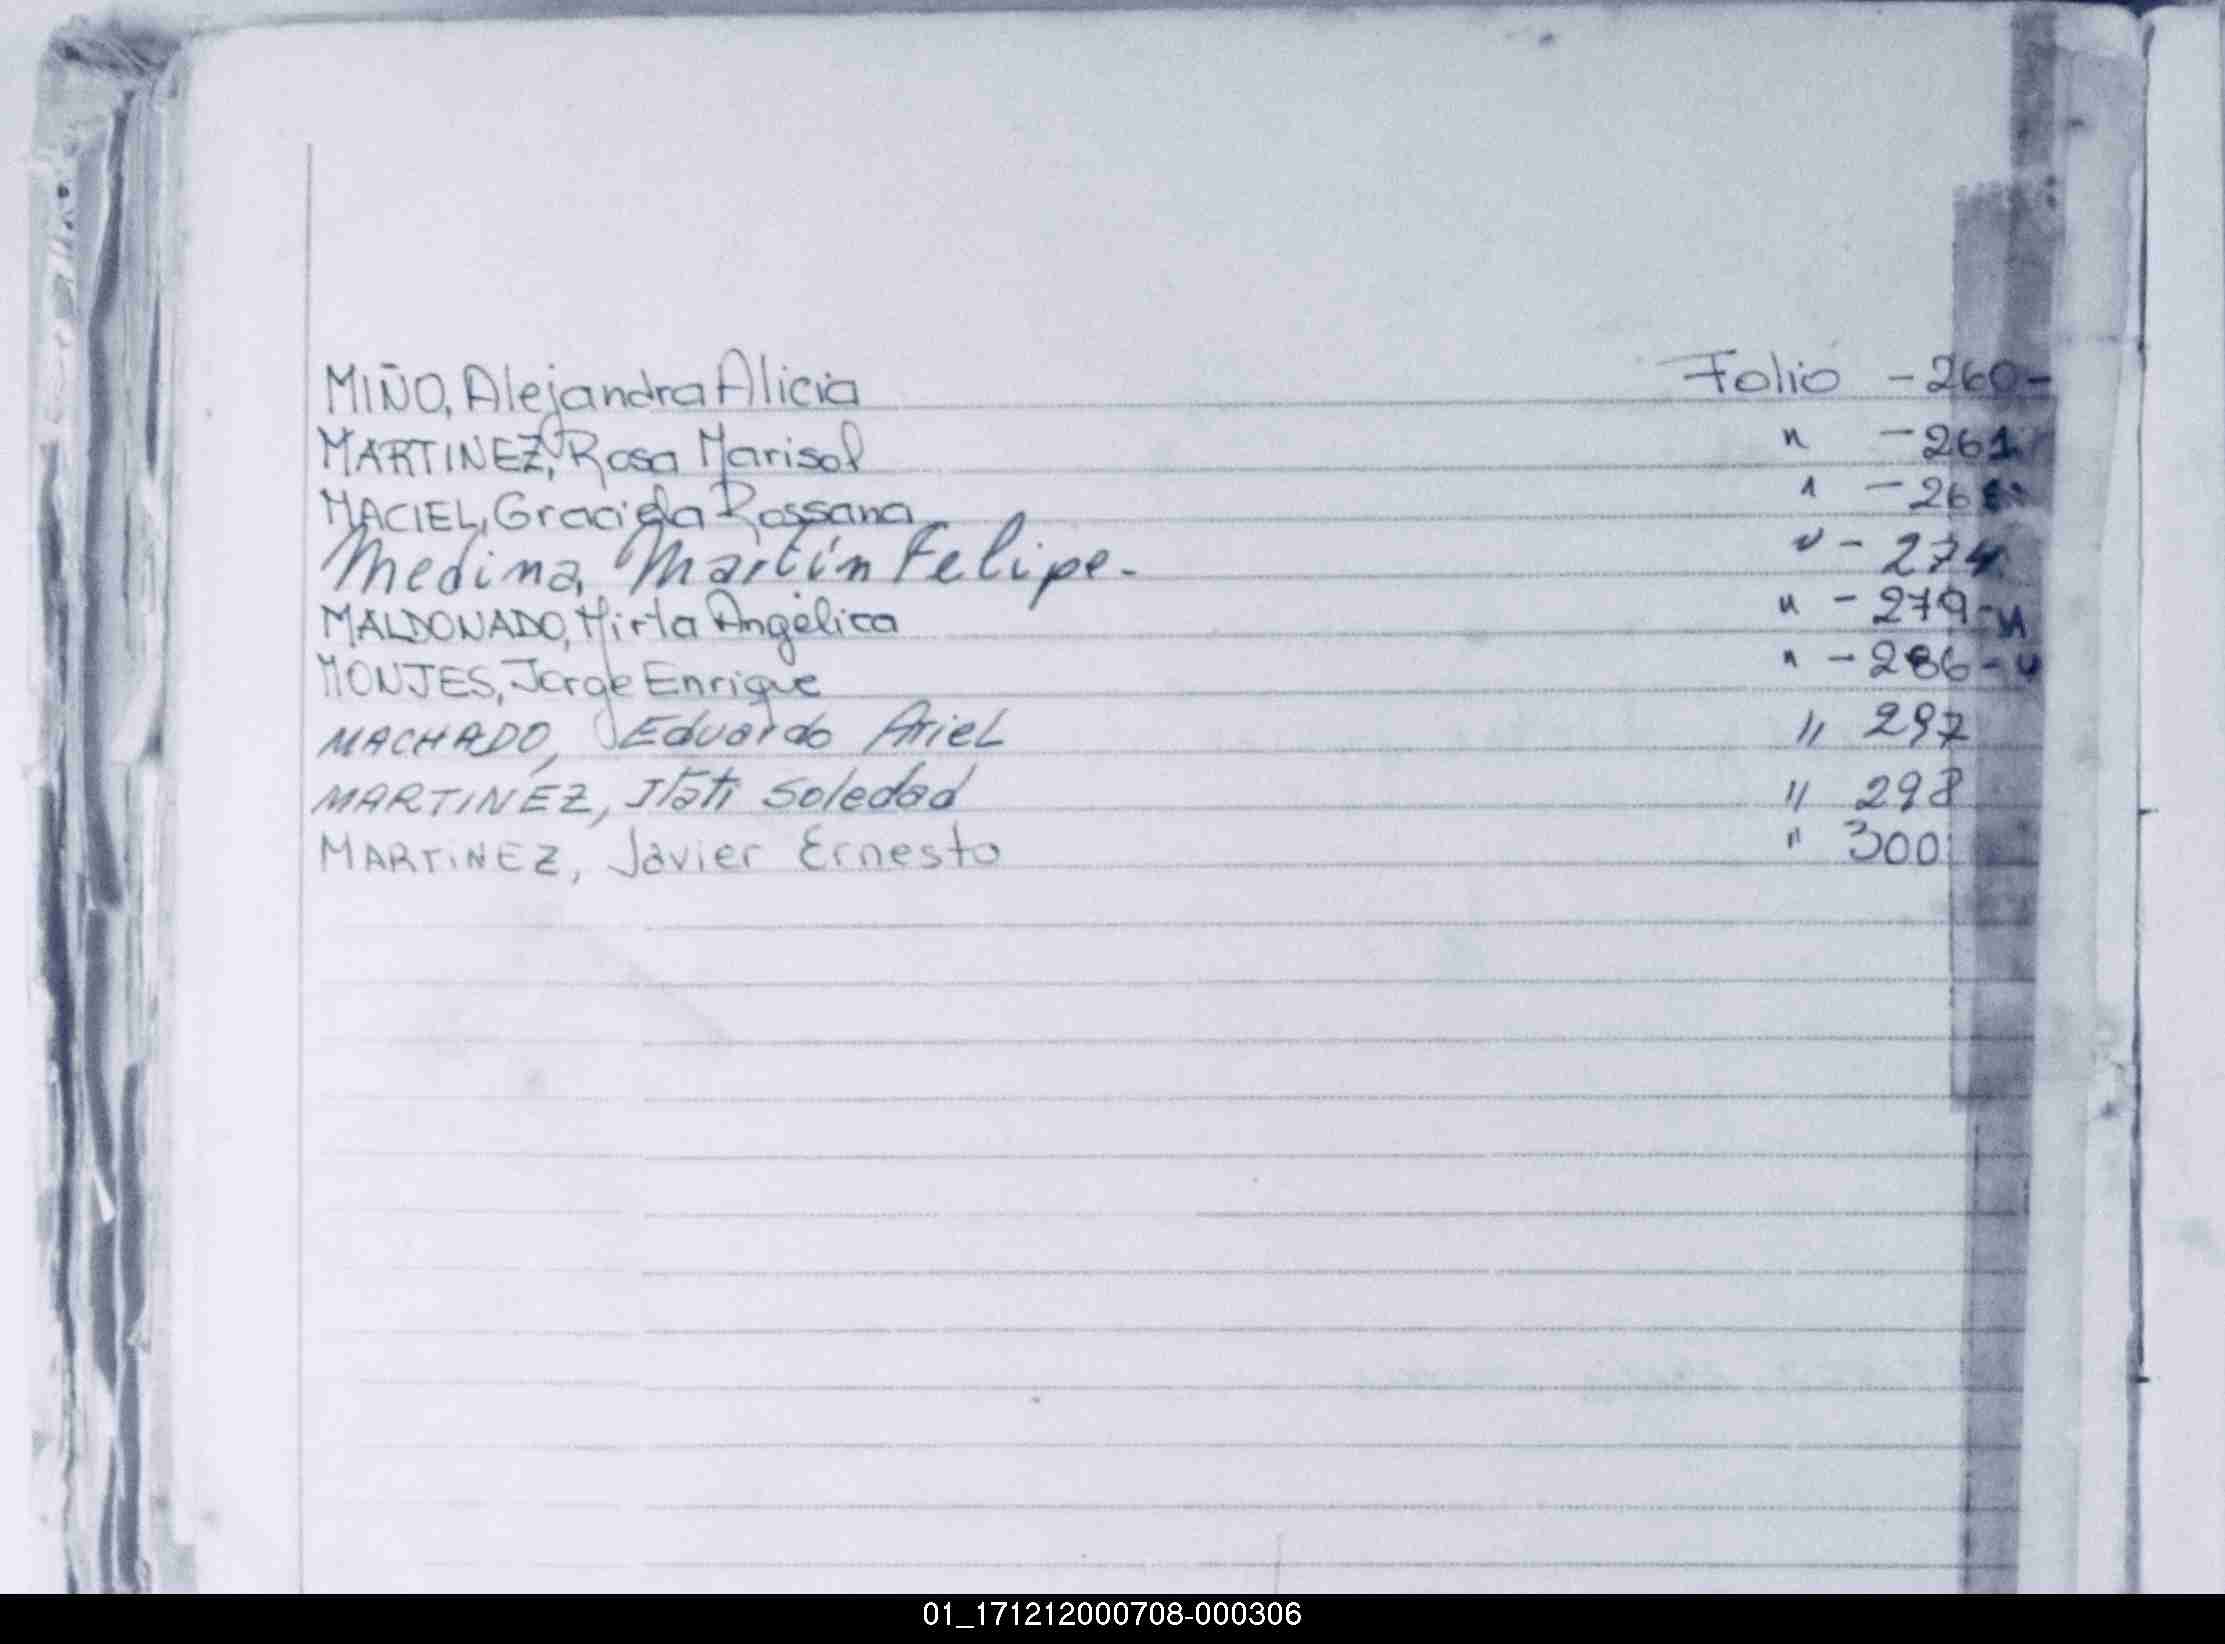 MIÑO, Alejandra Alicia Folio - 260 -
MARTINEZ, Rosa Marisol " - 261
MACIEL, Graciela Rossana " -
Medina, Martín Felipe. " - 274
MALDONADO, Mirta Angélica " - 279 - "
MONJES, Jorge Enrique " - 286 - "
MACHADO, Eduardo Ariel " 297
MARTINÉZ, Itatí Soledad " 298
MARTINEZ, Javier Ernesto " 300
01_171212000708-000306